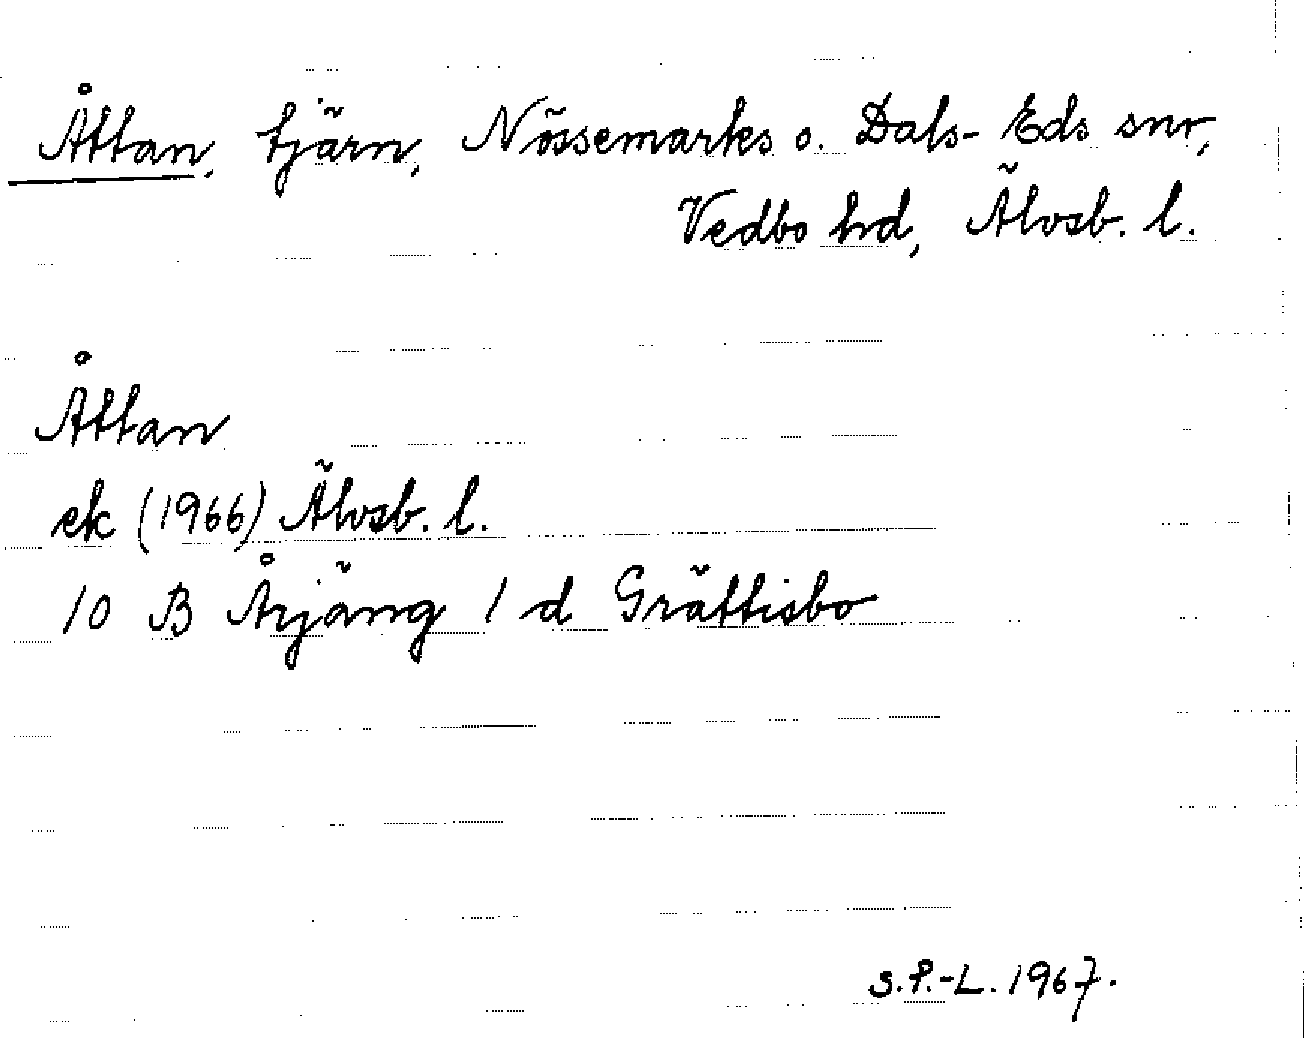 Åttan, tjärn, Nössemarks o. Dals-Eds snr,
Vedbo hd, Älvsb. l.
Åttan
ek (1966) Älvsb. l.
10 B Årjäng 1 d Gråttisbo
S.P.-L. 1967.